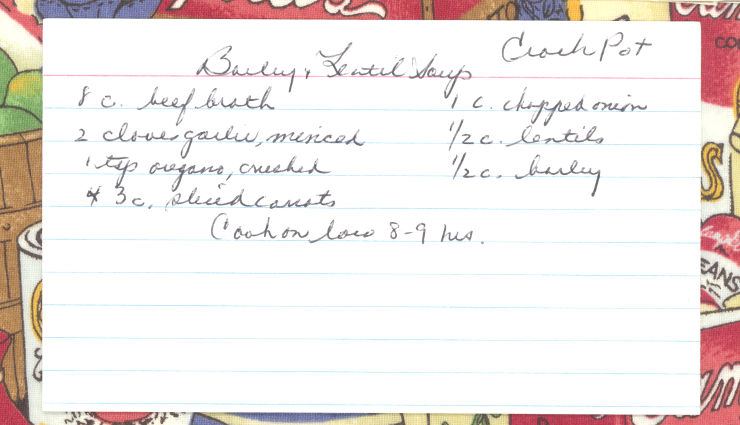 Crock Pot
Barley & Lentil Soup
8 c. beef broth 1 c. chopped onion
2 cloves garlic, minced 1/2 c. lentils
1 tsp oregano, crushed 1/2 c. barley
* 3 c. sliced carrots
Cook on low 8-9 hrs.
EANS